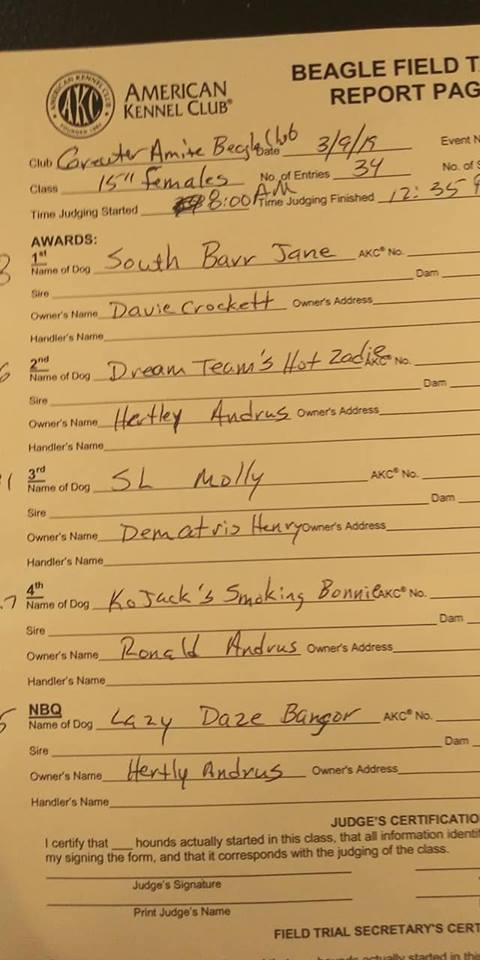 BEAGLE FIELD T
REPORT PAG
AMERICAN KENNEL CLUB
AKC
AMERICAN KENNEL CLUB®
FOUNDED 1884
Club Greater Amite Beagle Club Date 3/9/19 Event N
Class 15" females No. of Entries 34 No. of S
Time Judging Started 8:00 AM Time Judging Finished 12:35
AWARDS:
1st
Name of Dog South Barr Jane AKC® No.
Sire Dam
Owner's Name Davie Crockett Owner's Address
Handler's Name
2nd
Name of Dog Dream Team's Hot Zadie AKC® No.
Sire Dam
Owner's Name Hertley Andrus Owner's Address
Handler's Name
3rd
Name of Dog SL Molly AKC® No.
Sire Dam
Owner's Name Dematris Henry Owner's Address
Handler's Name
4th
Name of Dog KoJack's Smoking Bonnie AKC® No.
Sire Dam
Owner's Name Ronald Andrus Owner's Address
Handler's Name
NBQ
Name of Dog Lazy Daze Bangor AKC® No.
Sire Dam
Owner's Name Hertly Andrus Owner's Address
Handler's Name
JUDGE'S CERTIFICATIO
I certify that ___ hounds actually started in this class, that all information identif
my signing the form, and that it corresponds with the judging of the class.
Judge's Signature
Print Judge's Name
FIELD TRIAL SECRETARY'S CERT